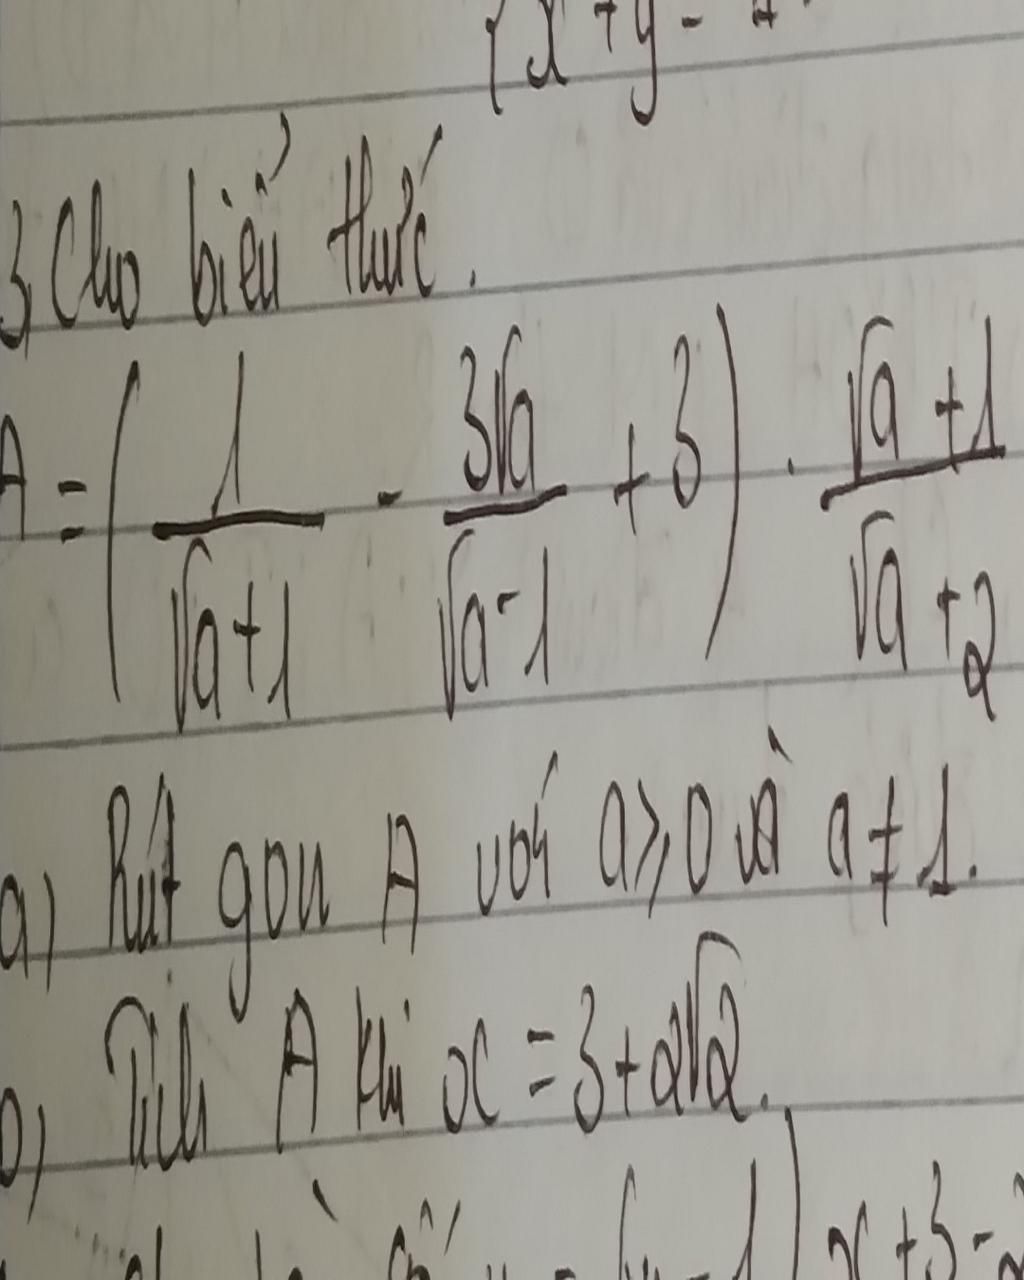 x + y =
3, Cho biểu thức.
A = ( 1/(√a+1) - 3√a/(√a-1) + 3 ) . (√a +1)/(√a +2)
a) Rút gọn A với a ≥ 0 và a ≠ 1.
b) Tính A khi x = 3 + 2√2.
x + 3 -